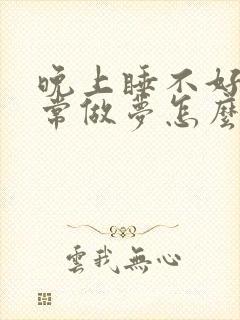 晚上睡不好
常做夢怎麼
雲我無心